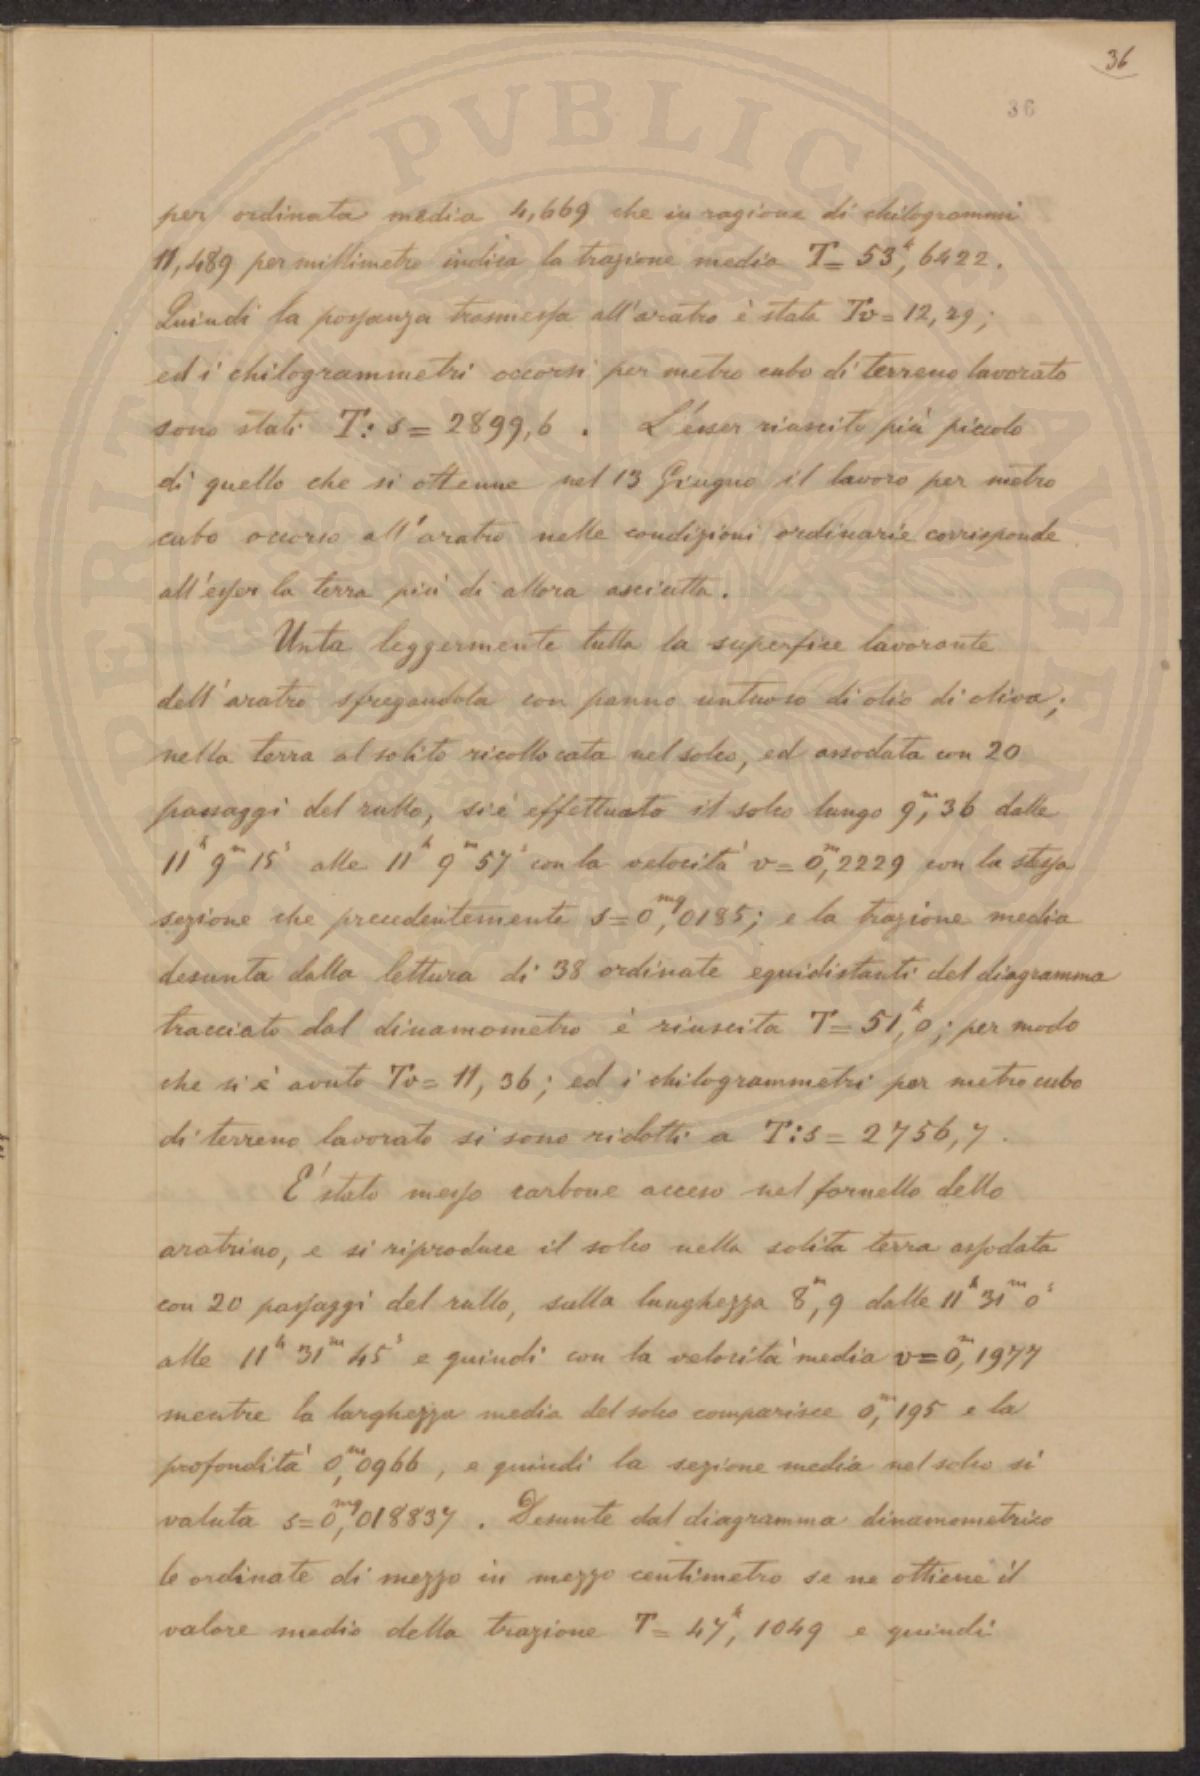 36
36
per ordinata media 4,669 che in ragione di chilogrammi
11,489 per millimetro indica la trazione media T = 53,ᵏ6422.
Quindi la possanza trasmessa all'aratro è stata Tv = 12,29;
ed i chilogrammetri occorsi per metro cubo di terreno lavorato
sono stati T:s = 2899,6. L'esser riuscito più piccolo
di quello che si ottenne nel 13 Giugno il lavoro per metro
cubo occorso all'aratro nelle condizioni ordinarie corrisponde
all'esser la terra più di allora asciutta.
Unta leggermente tutta la superfice lavorante
dell'aratro sfregandola con panno untuoso di olio di oliva;
nella terra al solito ricollocata nel solco, ed assodata con 20
passaggi del rullo, si è effettuato il solco lungo 9,ᵐ36 dalle
11ʰ 9ᵐ 15ˢ alle 11ʰ 9ᵐ 57ˢ con la velocità v = 0,ᵐ2229 con la stessa
sezione che precedentemente s = 0,ᵐᑫ0185; e la trazione media
desunta dalla lettura di 38 ordinate equidistanti del diagramma
tracciato dal dinamometro è riuscita T = 51,ᵏ0; per modo
che si è avuto Tv = 11,36; ed i chilogrammetri per metro cubo
di terreno lavorato si sono ridotti a T:s = 2756,7.
E' stato messo carbone acceso nel fornello dello
aratrino, e si riproduce il solco nella solita terra assodata
con 20 passaggi del rullo, sulla lunghezza 8,ᵐ9 dalle 11ʰ 31ᵐ 0ˢ
alle 11ʰ 31ᵐ 45ˢ e quindi con la velocità media v = 0,ᵐ1977
mentre la larghezza media del solco comparisce 0,ᵐ195 e la
profondità 0,ᵐ0966, e quindi la sezione media nel solco si
valuta s = 0,ᵐᑫ018837. Desunte dal diagramma dinamometrico
le ordinate di mezzo in mezzo centimetro se ne ottiene il
valore medio della trazione T = 47,ᵏ1049 e quindi